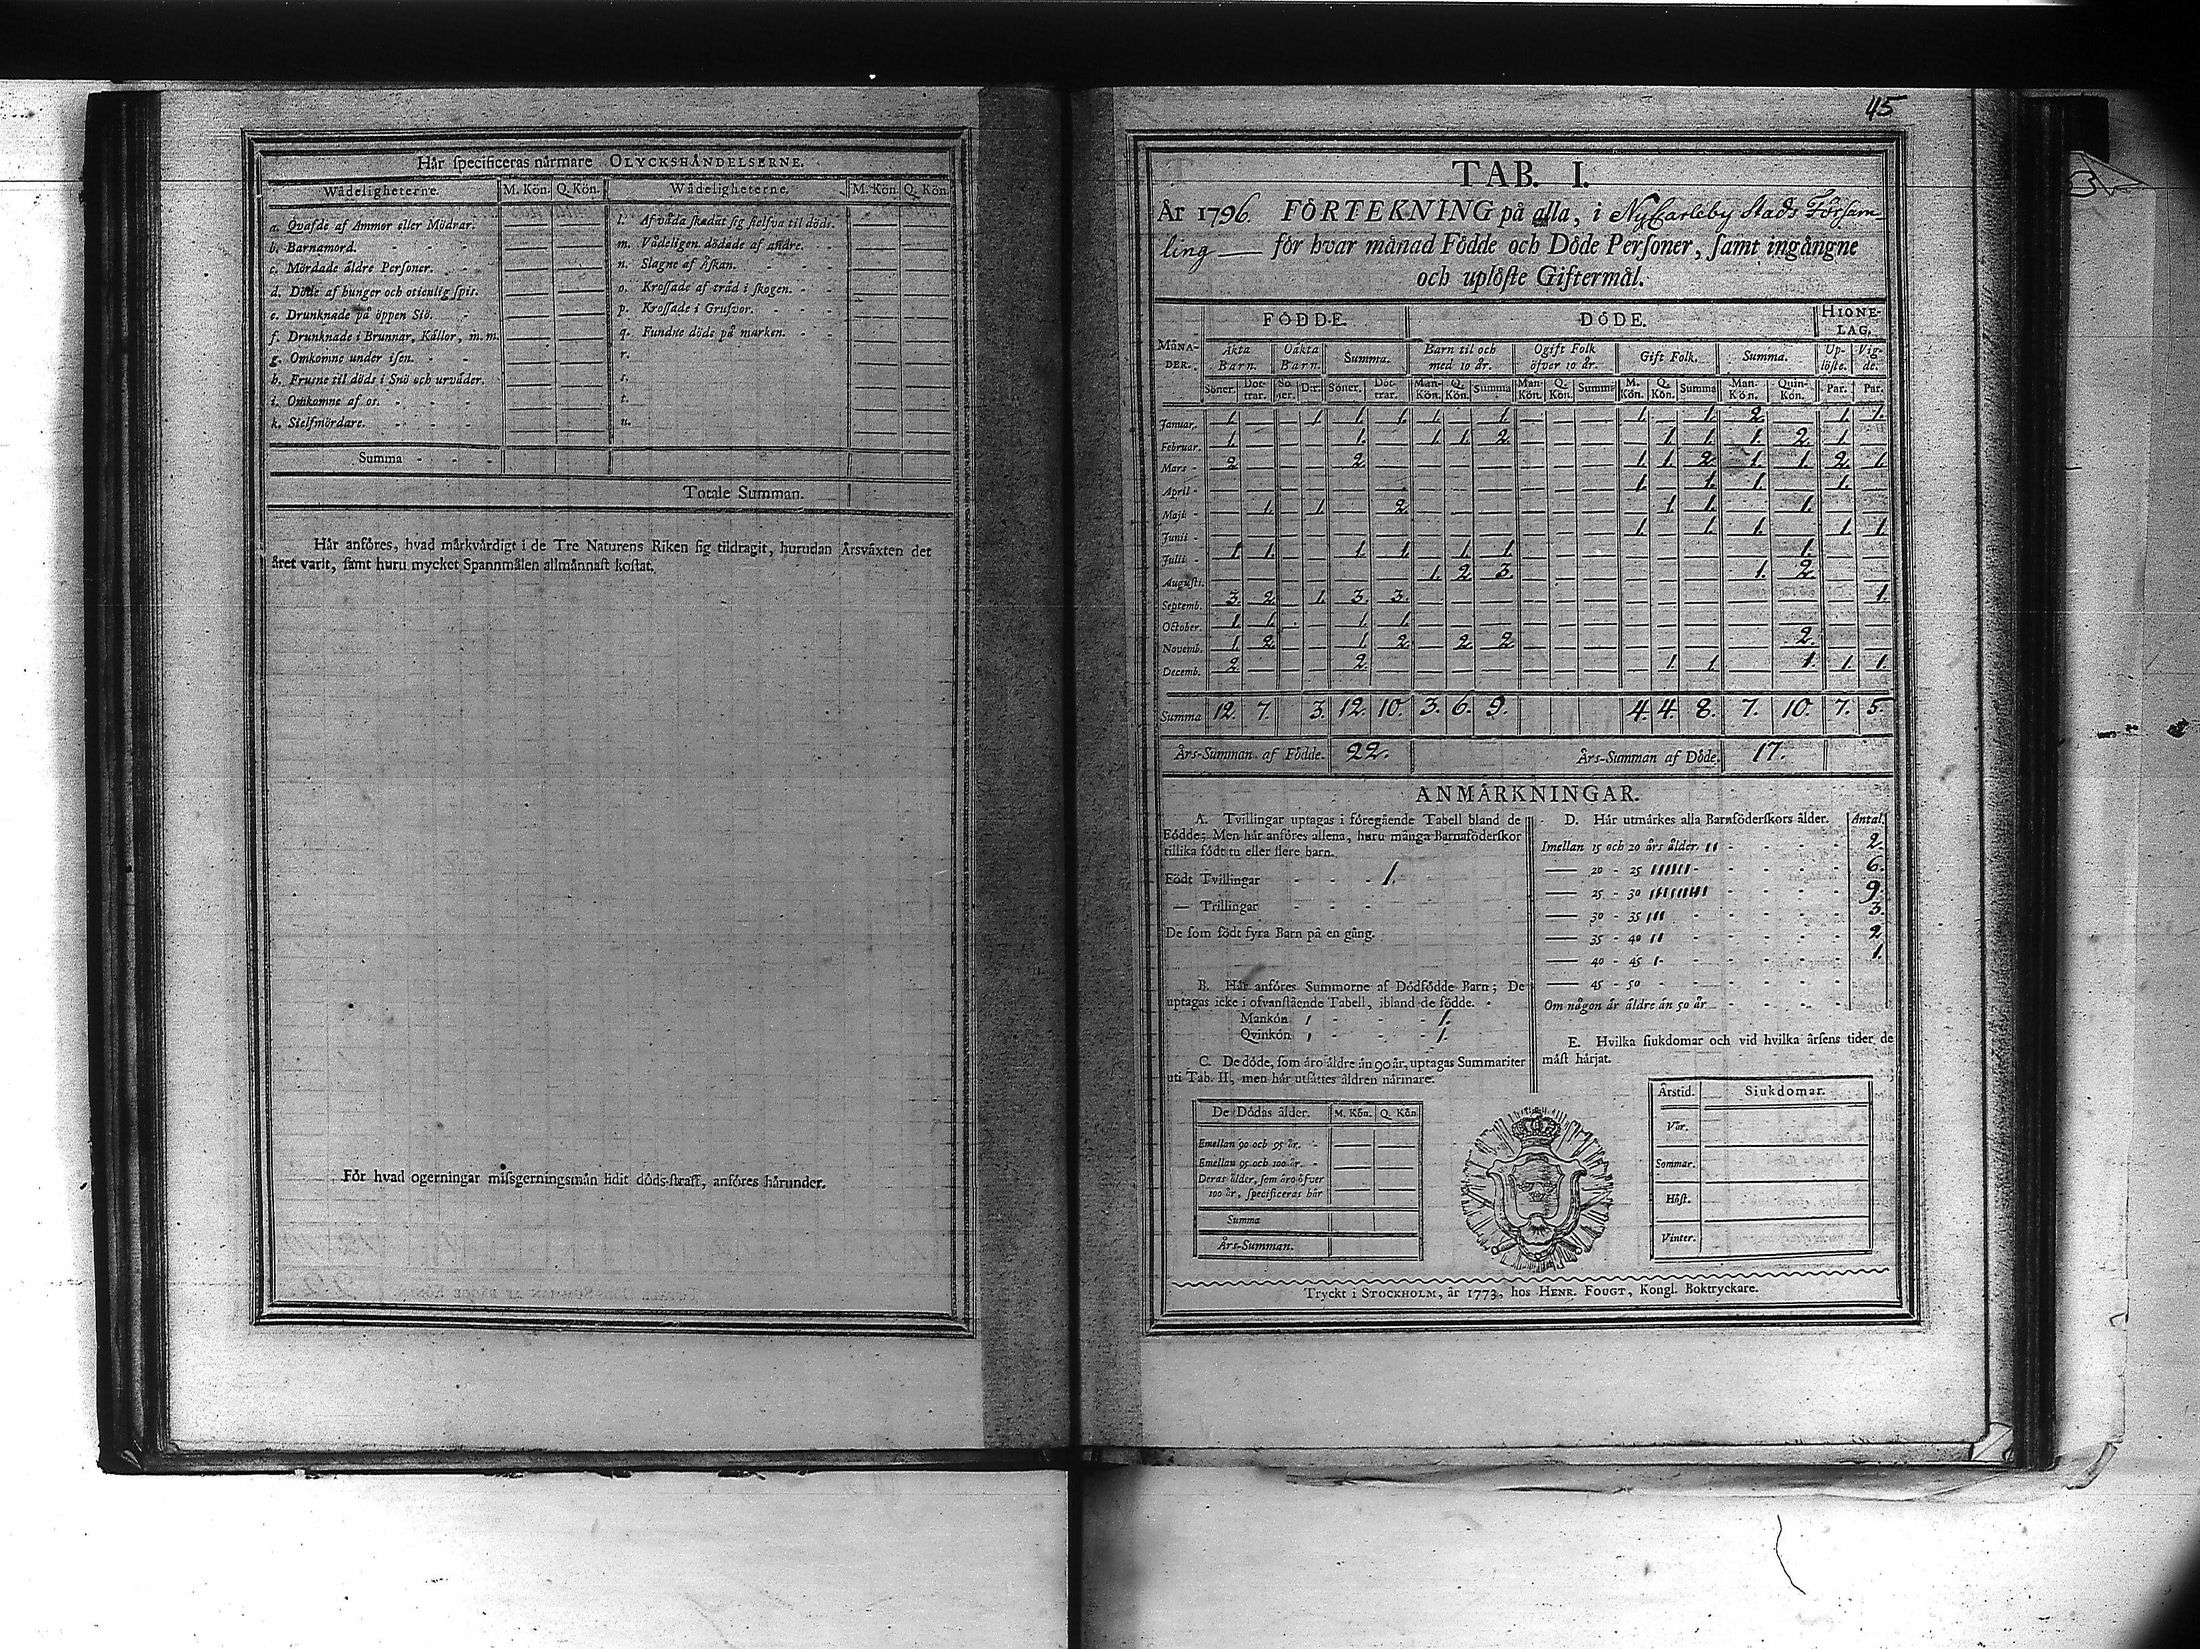 Hår specificeras nårmare OLYCKSHÅNDELSERNE.
Wådeligheterne. M. Kön. Q. Kön. Wådeligheterne. M. Kön. Q. Kön.
a. Qvafde af Ammor eller Mödrar. — — l. Af våda skadat sig sielfva til döds. — —
b. Barnamord. — — m. Vådeligen dödade af andre. — —
c. Mördade äldre Personer. — — n. Slagne af Åskan. — —
d. Döde af hunger och otienlig spis. — — o. Krossade af träd i skogen. — —
e. Drunknade på öppen Siö. — — p. Krossade i Grufvor. — —
f. Drunknade i Brunnar, Källor, m.m. — — q. Fundne döde på marken. — —
g. Omkomne under isen. — — r. — —
h. Frusne til döds i Snö och urväder. — — s. — —
i. Omkomne af os. — — t. — —
k. Sielfmördare. — — u. — —
Summa
Totale Summan.
Hår anföres, hvad mårkvårdigt i de Tre Naturens Riken sig tildragit, hurudan Årsvåxten det
året varit, samt huru mycket Spannmålen allmånnast kostat.
För hvad ogerningar missgerningsmån lidit döds-straff, anföres hårunder.
45
TAB. I.
År 1796. FÖRTEKNING på alla, i Nykarleby Stads Församling
ling — för hvar månad Födde och Döde Personer, samt ingångne
och uplöste Giftermål.
MÅNADER. FÖDDE. DÖDE. HIONELAG.
Äkta Barn. Oäkta Barn. Summa. Barn til och med 10 år. Ogift Folk öfver 10 år. Gift Folk. Summa. Uplöste. Vigde.
Söner. Döttrar. Söner. Dr. Söner. Döttrar. Man-Kön. Q. Kön. Summa Man-Kön. Q. Kön. Summa M. Kön. Q. Kön. Summa Man-Kön. Quin-Kön. Par. Par.
Januar. 1. — — 1. 1. 1. 1. — 1. — — — 1. — 1. 2. — 1. 1.
Februar. 1. — — — 1. — 1. 1. 2. — — — — 1. 1. 1. 2. 1. —
Mars - 2. — — — 2. — — — — — — — 1. 1. 2. 1. 1. 2. 1.
April - — — — — — — — — — — — — 1. — 1. 1. — 1. —
Maji - — 1. — 1. — 2. — — — — — — — 1. 1. — 1. — —
Junii - — — — — — — — — — — — — 1. — 1. 1. — 1. 1.
Julii - 1. 1. — — 1. 1. — 1. 1. — — — — — — — 1. — —
Augusti. — — — — — — 1. 2. 3. — — — — — — 1. 2. — —
Septemb. 3. 2. — 1. 3. 3. — — — — — — — — — — — — 1.
October. 1. 1. — — 1. 1. — — — — — — — — — — — — —
Novemb. 1. 2. — — 1. 2. — 2. 2. — — — — — — — 2. — —
Decemb. 2. — — — 2. — — — — — — — — 1. 1. — 1. 1. 1.
Summa 12. 7. 3. 12. 10. 3. 6. 9. 4. 4. 8. 7. 10. 7. 5
Års-Summan af Födde. 22. Års-Summan af Döde. 17.
ANMÅRKNINGAR.
A. Tvillingar uptagas i föregående Tabell bland de
Födde; Men hår anföres allena, huru många Barnaföderskor
tillika födt tu eller flere barn.
Födt Tvillingar - - - 1.
— Trillingar - - -
De som födt fyra Barn på en gång.
B. Hår anföres Summorne af Dödfödde Barn; De
uptagas icke i ofvanstående Tabell, ibland de födde.
Mankön 1 - - - 1.
Qvinkön 1 - - - 1.
C. De döde, som åro åldre ån 90 år, uptagas Summariter
uti Tab. II, men hår utsåttes åldren nårmare.
De Dödas ålder. M. Kön. Q. Kön
Emellan 90 och 95 år. - — —
Emellan 95 och 100 år. - — —
Deras ålder, som äro öfver — —
100 år, specificeras här — —
Summa
Års-Summan.
D. Hår utmårkes alla Barnföderskors ålder. Antal.
Imellan 15 och 20 års ålder. 11 - 2.
— 20 - 25 111111 - 6.
— 25 - 30 111111111 - 9.
— 30 - 35 111 - 3.
— 35 - 40 11 - 2.
— 40 - 45 1 - 1.
— 45 - 50 -
Om någon är äldre än 50 år -
E. Hvilka siukdomar och vid hvilka årsens tider de
måst hårjat.
Årstid. Siukdomar.
Vår.
Sommar.
Höst.
Vinter.
Tryckt i STOCKHOLM, år 1773, hos HENR. FOUGT, Kongl. Boktryckare.